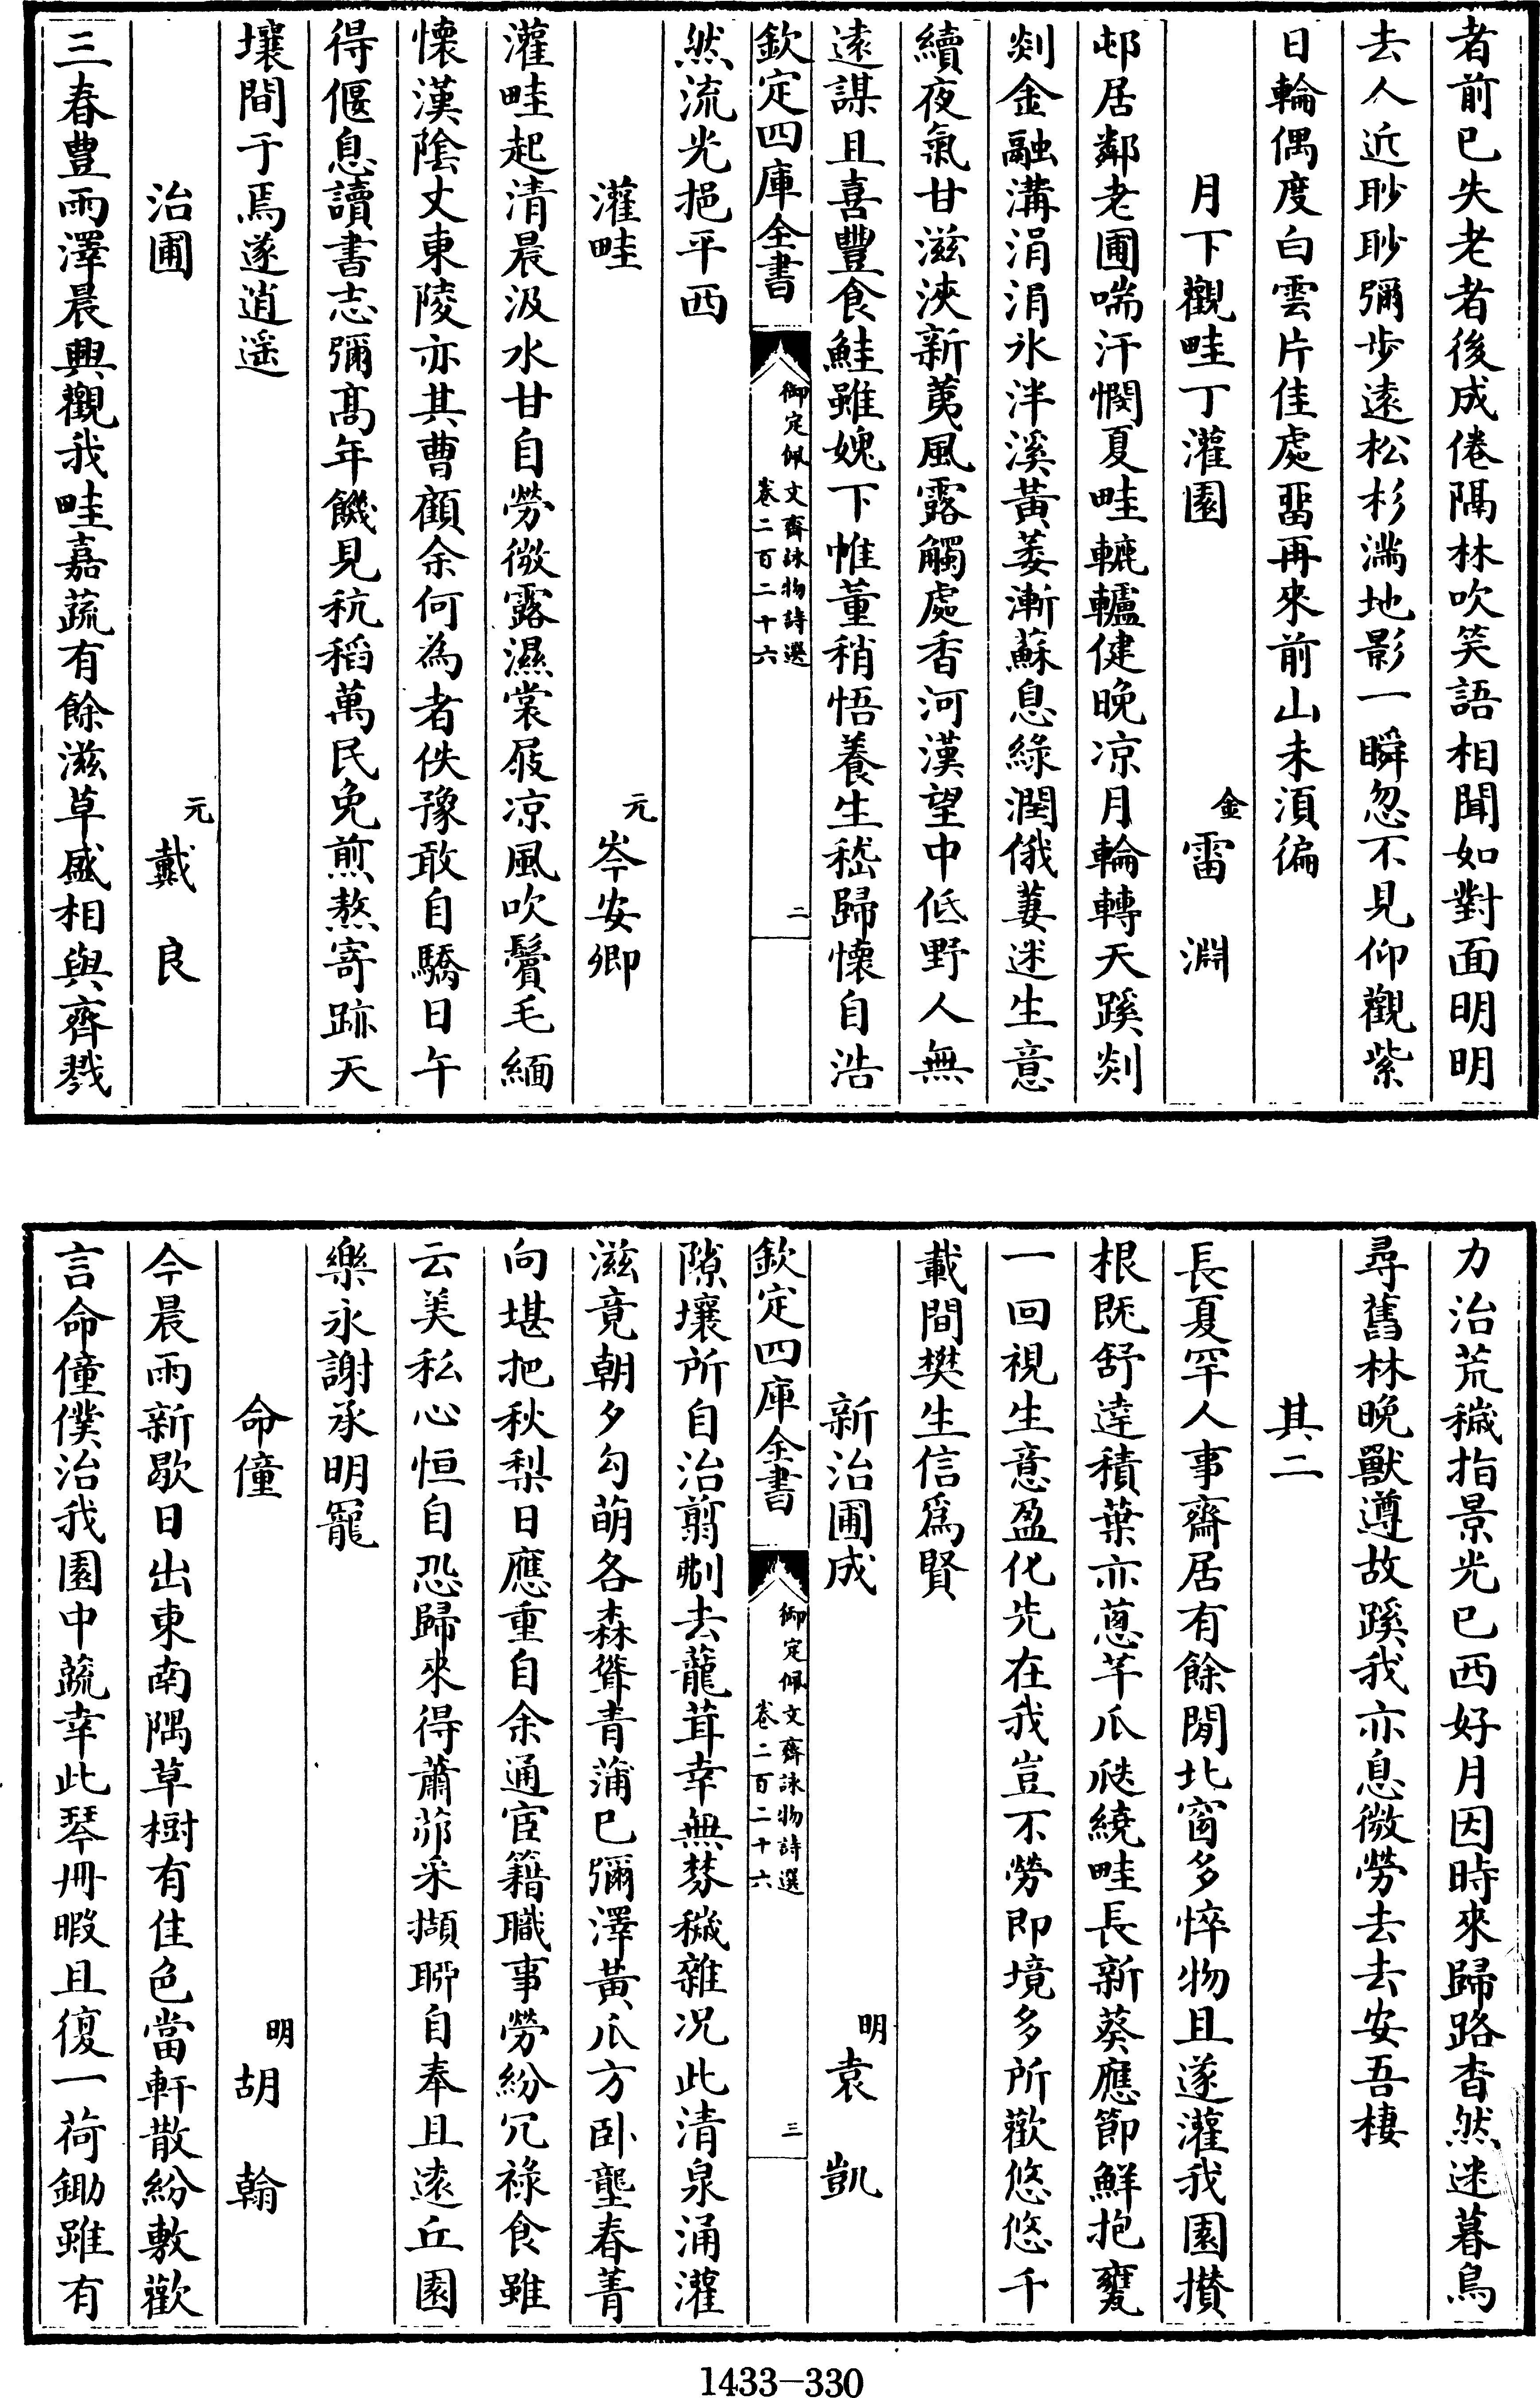 者前已失老者後成倦隔林吹笑語相聞如對面明明
去人近眇眇彌步遠松杉滿地影一瞬忽不見仰觀紫
日輪偶度白雲片佳處畱再來前山未須徧
月下觀畦丁灌園
金
雷淵
邨居鄰老圃喘汗憫夏畦轆轤健晚凉月輪轉天蹊剡
剡金融溝涓涓氷泮溪黃萎漸蘇息綠潤俄萋迷生意
續夜氣甘滋浹新荑風露觸處香河漢望中低野人無
遠謀且喜豐食鮭雖媿下帷董稍悟養生嵇歸懷自浩
欽定四庫全書
御定佩文齋詠物詩選
卷二百二十六
二
然流光挹平西
灌畦
元
岑安卿
灌畦起清晨汲水甘自勞微露濕裳屐凉風吹鬢毛緬
懷漢陰丈東陵亦其曹顧余何為者佚豫敢自驕日午
得偃息讀書志彌髙年饑見秔稻萬民免煎熬寄跡天
壤間于焉遂逍遥
治圃
元
戴良
三春豊雨澤晨興觀我畦嘉蔬有餘滋草盛相與齊戮
力治荒穢指景光已西好月因時來歸路杳然迷暮鳥
尋舊林晚獸遵故蹊我亦息微勞去去安吾棲
其二
長夏罕人事齋居有餘閒北窗多悴物且遂灌我園攅
根既舒達積葉亦蔥芊瓜瓞繞畦長新葵應節鮮抱甕
一回視生意盈化先在我豈不勞即境多所歡悠悠千
載間樊生信爲賢
新治圃成
明
袁凱
欽定四庫全書
御定佩文齋詠物詩選
卷二百二十六
三
隙壤所自治翦剃去蘢茸幸無棼穢雜况此清泉涌灌
滋竟朝夕勾萌各森聳青蒲已彌澤黃瓜方卧壟春菁
向堪把秋梨日應重自余通宦籍職事勞紛冗祿食雖
云美私心恒自恐歸來得蕭茆采擷聊自奉且遠丘園
樂永謝承明寵
命僮
明
胡翰
今晨雨新歇日出東南隅草樹有佳色當軒散紛敷歡
言命僮僕治我園中蔬幸此琴冊暇且復一荷鋤雖有
1433-330